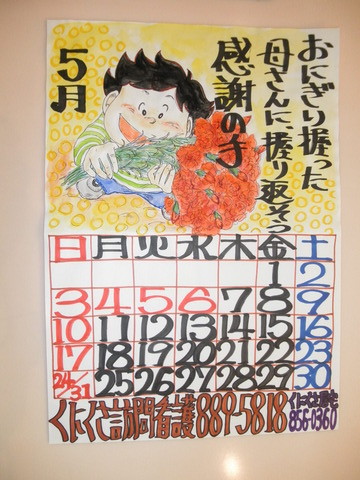 おにぎり握った
母さんに、握り返そう
感謝の手
5月
日 月 火 水 木 金 土
1 2
3 4 5 6 7 8 9
10 11 12 13 14 15 16
17 18 19 20 21 22 23
24/31 25 26 27 28 29 30
くにくさ訪問看護 889-5818
856-0360